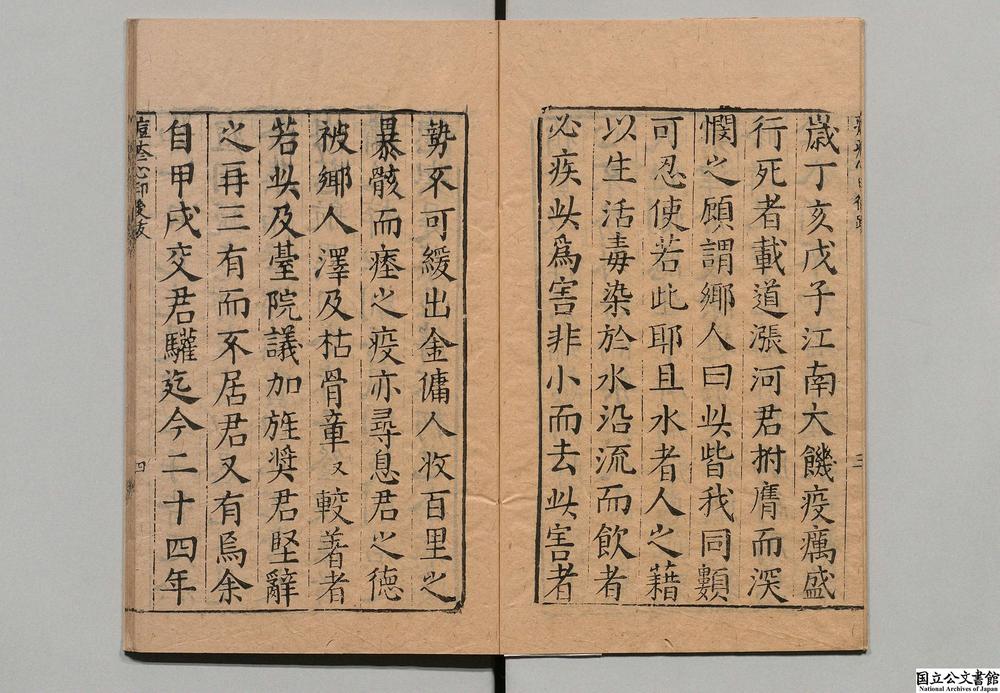 歳丁亥戊子江南大饑疫癘盛
行死者載道漲河君拊膺而深
憫之顧謂鄉人曰此皆我同類
可忍使若此耶且水者人之藉
以生活毒染於水沿流而飲者
必疾此爲害非小而去此害者
三
勢不可緩出金傭人收百里之
暴骸而瘞之疫亦尋息君之德
被鄉人澤及枯骨章又較著者
若此及臺院議加旌奬君堅辭
之再三有而不居君又有焉余
自甲戌交君驩迄今二十四年
痘疹心印後跋
四
国立公文書館
National Archives of Japan